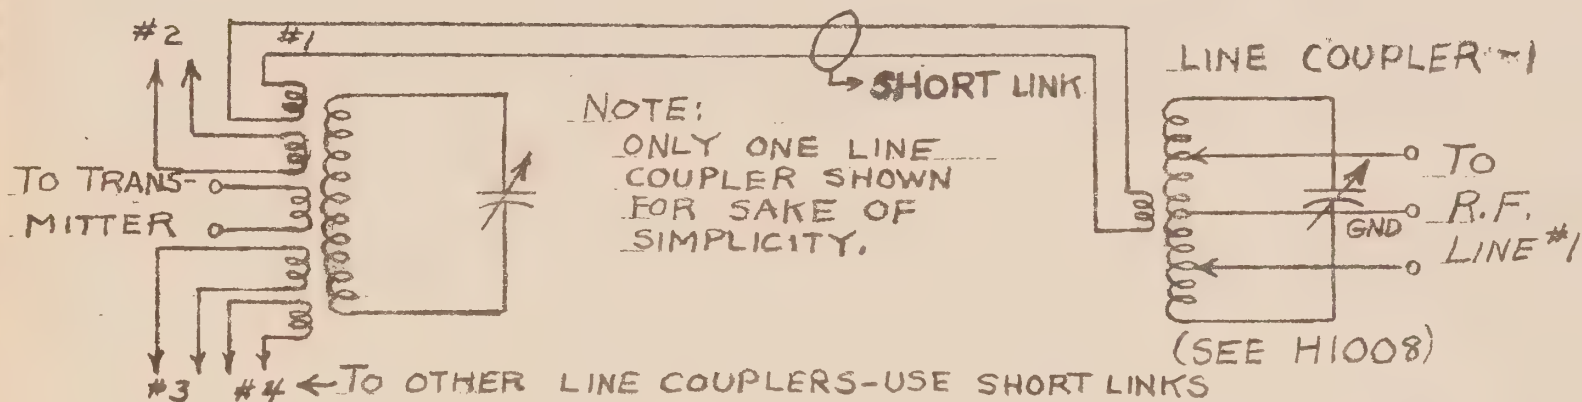 #2
#1
SHORT LINK
LINE COUPLER-1
NOTE:
ONLY ONE LINE
COUPLER SHOWN
FOR SAKE OF
SIMPLICITY.
TO TRANS-
MITTER
TO
R.F.
LINE #1
GND
(SEE H1008)
#3 #4 ← TO OTHER LINE COUPLERS-USE SHORT LINKS